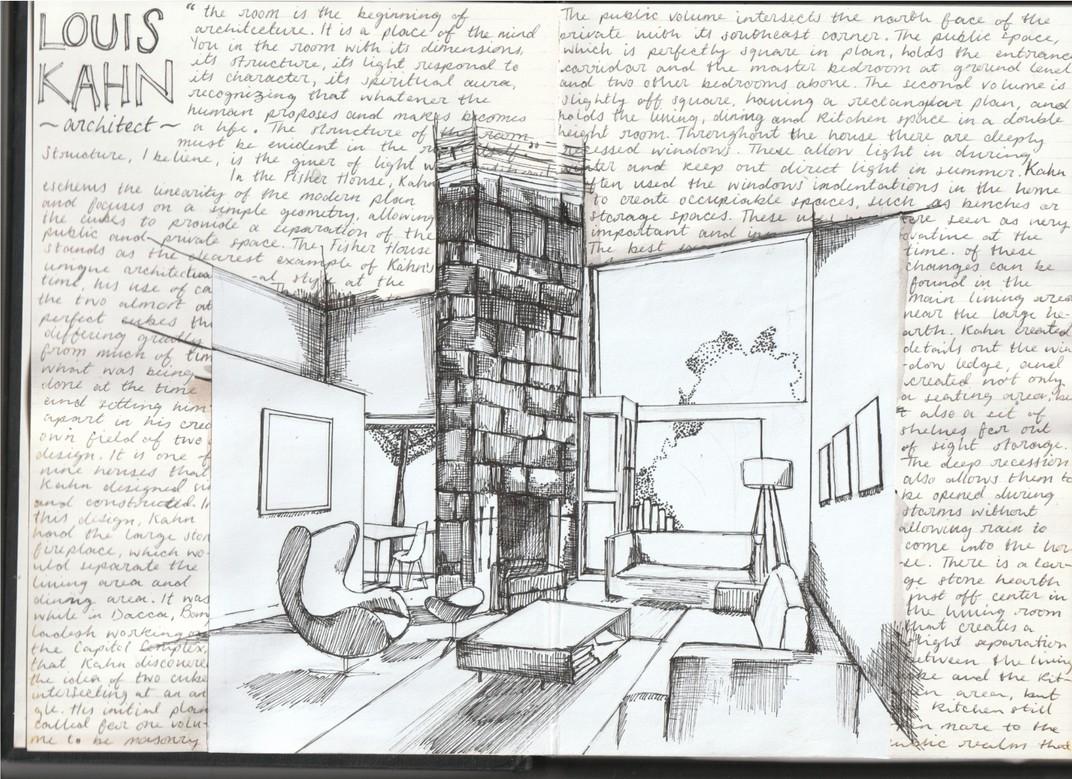 LOUIS
KAHN
~ architect ~
" the room is the beginning of
architecture. It is a place of the mind
You in the room with its dimensions,
its structure, its light respond to
its character, its spiritual aura,
recognizing that whatever the
human proposes and makes becomes
a life. The structure of the room
must be evident in the
Structure, I believe, is the giver of light
In the Fisher House, Kahn
eschews the linearity of the modern plan
and focuses on a simple geometry, allowing
the cubes to provide a separation of the
public and private space. The Fisher House
stands as the clearest example of Kahn's
unique architectu -al style at the
time, his use of
the two almost
perfect cubes
differing greatly
from much of
what was being
done at the time
and setting him
apart in his
own field of two
design. It is one of
nine houses that
Kahn designed
and constructed. In
this design, Kahn
had the large
fireplace, which wo-
uld separate the
living area and
dining area. It was
while in Dacca,
ladesh working
the Capitol Complex,
that Kahn discovere
the idea of two cube
intersecting at an an
gle. His initial plan
called for one volu-
me to be masonry
The public volume intersects the north face of the
private with its southeast corner. The public space,
which is perfectly square in plan, holds the entrance
corridor and the master bedroom at ground level
and two other bedrooms above. The second volume is
slightly off square, having a rectangular plan, and
holds the living, dining and kitchen space in a double
height room. Throughout the house there are deeply
recessed windows. These allow light in during
and keep out direct light in summer. Kahn
often used the windows' indentations in the home
to create occupiable spaces, such as benches or
storage spaces. These were seen as very
important and
The best
time. Of these
changes can be
found in the
main living area
near the large he-
arth. Kahn created
details out the win
dow ledge, and
created not only
a seating area,
also a set of
shelves for out
of sight storage.
The deep recession
also allows them to
be opened during
storms without
allowing rain to
come into the hou
se. There is a lar-
ge stone hearth
just off center in
the living room
that creates a
slight separation
between the living
and the kit-
en area, but
kitchen still
more to the
public realms tha